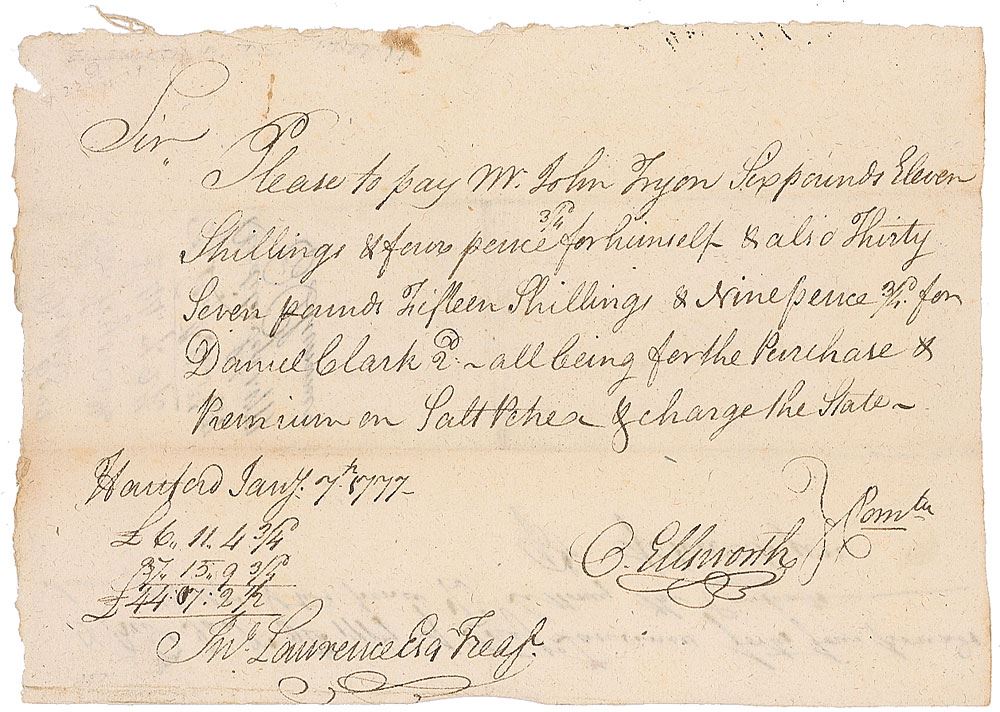 Sir
Please to pay Mr. John Tryon Six pounds Eleven
Shillings & four pence 3/4d for himself & also Thirty
Seven pounds Fifteen Shillings & Nine pence 3/4d for
Daniel Clark 2d. - all being for the Purchase &
Premium on Salt Petre & charge the State -
Hartford Jany. 7th 1777
£6,, 11. 4 3/4d
37,, 15,, 9 3/4d
£44: 07: 2 1/2
O. Ellsworth } Comtee
Jno. Lawrence Esq Treasr.